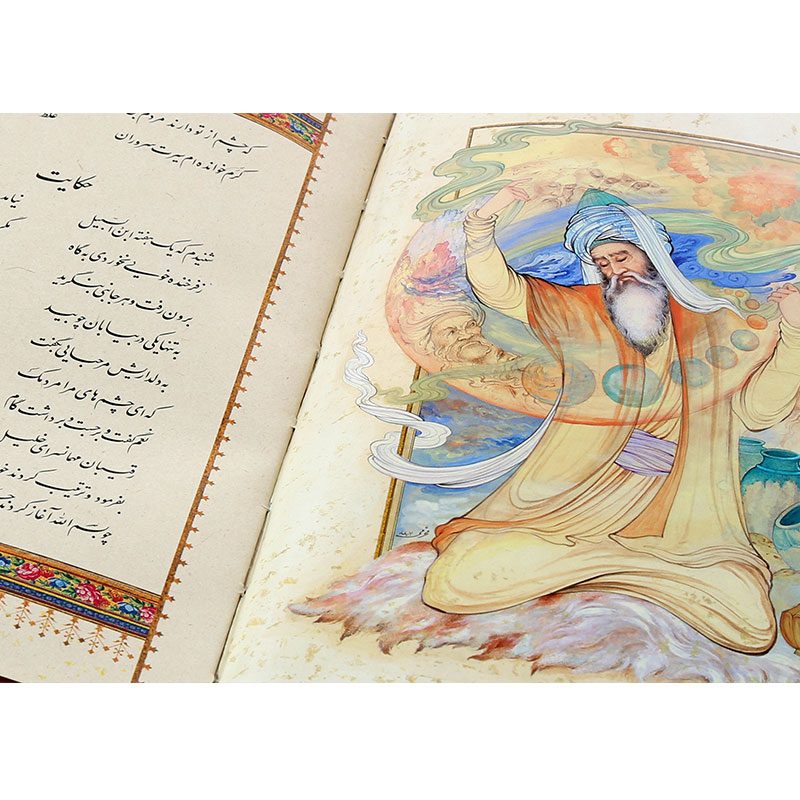 غلط
که چشم از تو دارند مردم ب
کرم خوانده‌ام سیرت سروران
حکایت
شنیدم که یک هفته ابن السبیل
نیامد
ز فرخنده خویی نخوردی پگاه
برون رفت و هر جانبی بنگرید
به تنها یکی در بیابان چو بید
به دلداریش مرحبایی بگفت
که ای چشم‌های مرا مردمک
نعم گفت و برجست و برداشت گام
رقیبان مهمانسرای خلیل
بفرمود و ترتیب کردند خو
چو بسم الله آغاز کردند